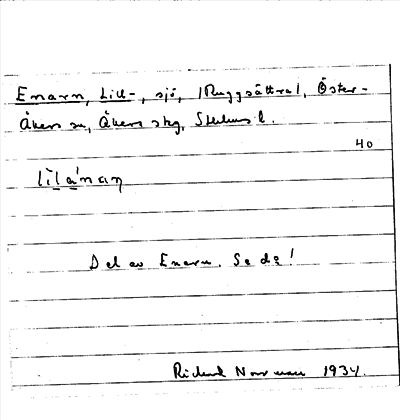 Enarn, Lill-, sjö, |Ruggsättra|, Öster-
Åkers sn, Åkers skg, Sthlms l.
40
lìlánaŋ
Del av Enarn. Se d:o!
Rickard Norrman 1934.